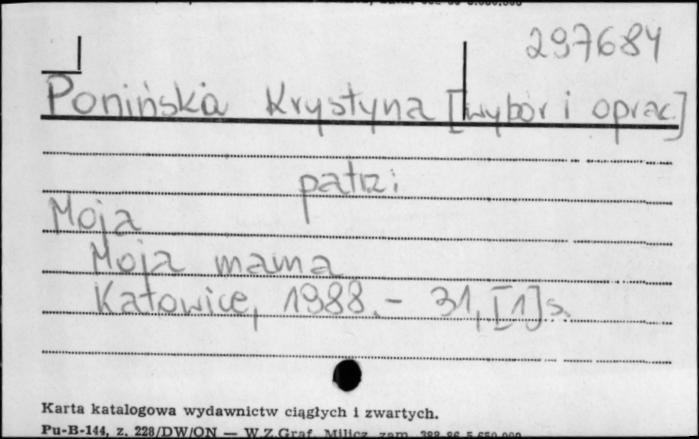 297684
Ponińska Krystyna [wybór i oprac.]
patrz:
Moja
Moja mama
Katowice, 1988. - 31, [1] s.
Karta katalogowa wydawnictw ciągłych i zwartych.
Pu-B-144, z. 228/DW/ON — W.Z.Graf. Milicz, zam. 388-86 5.650.000